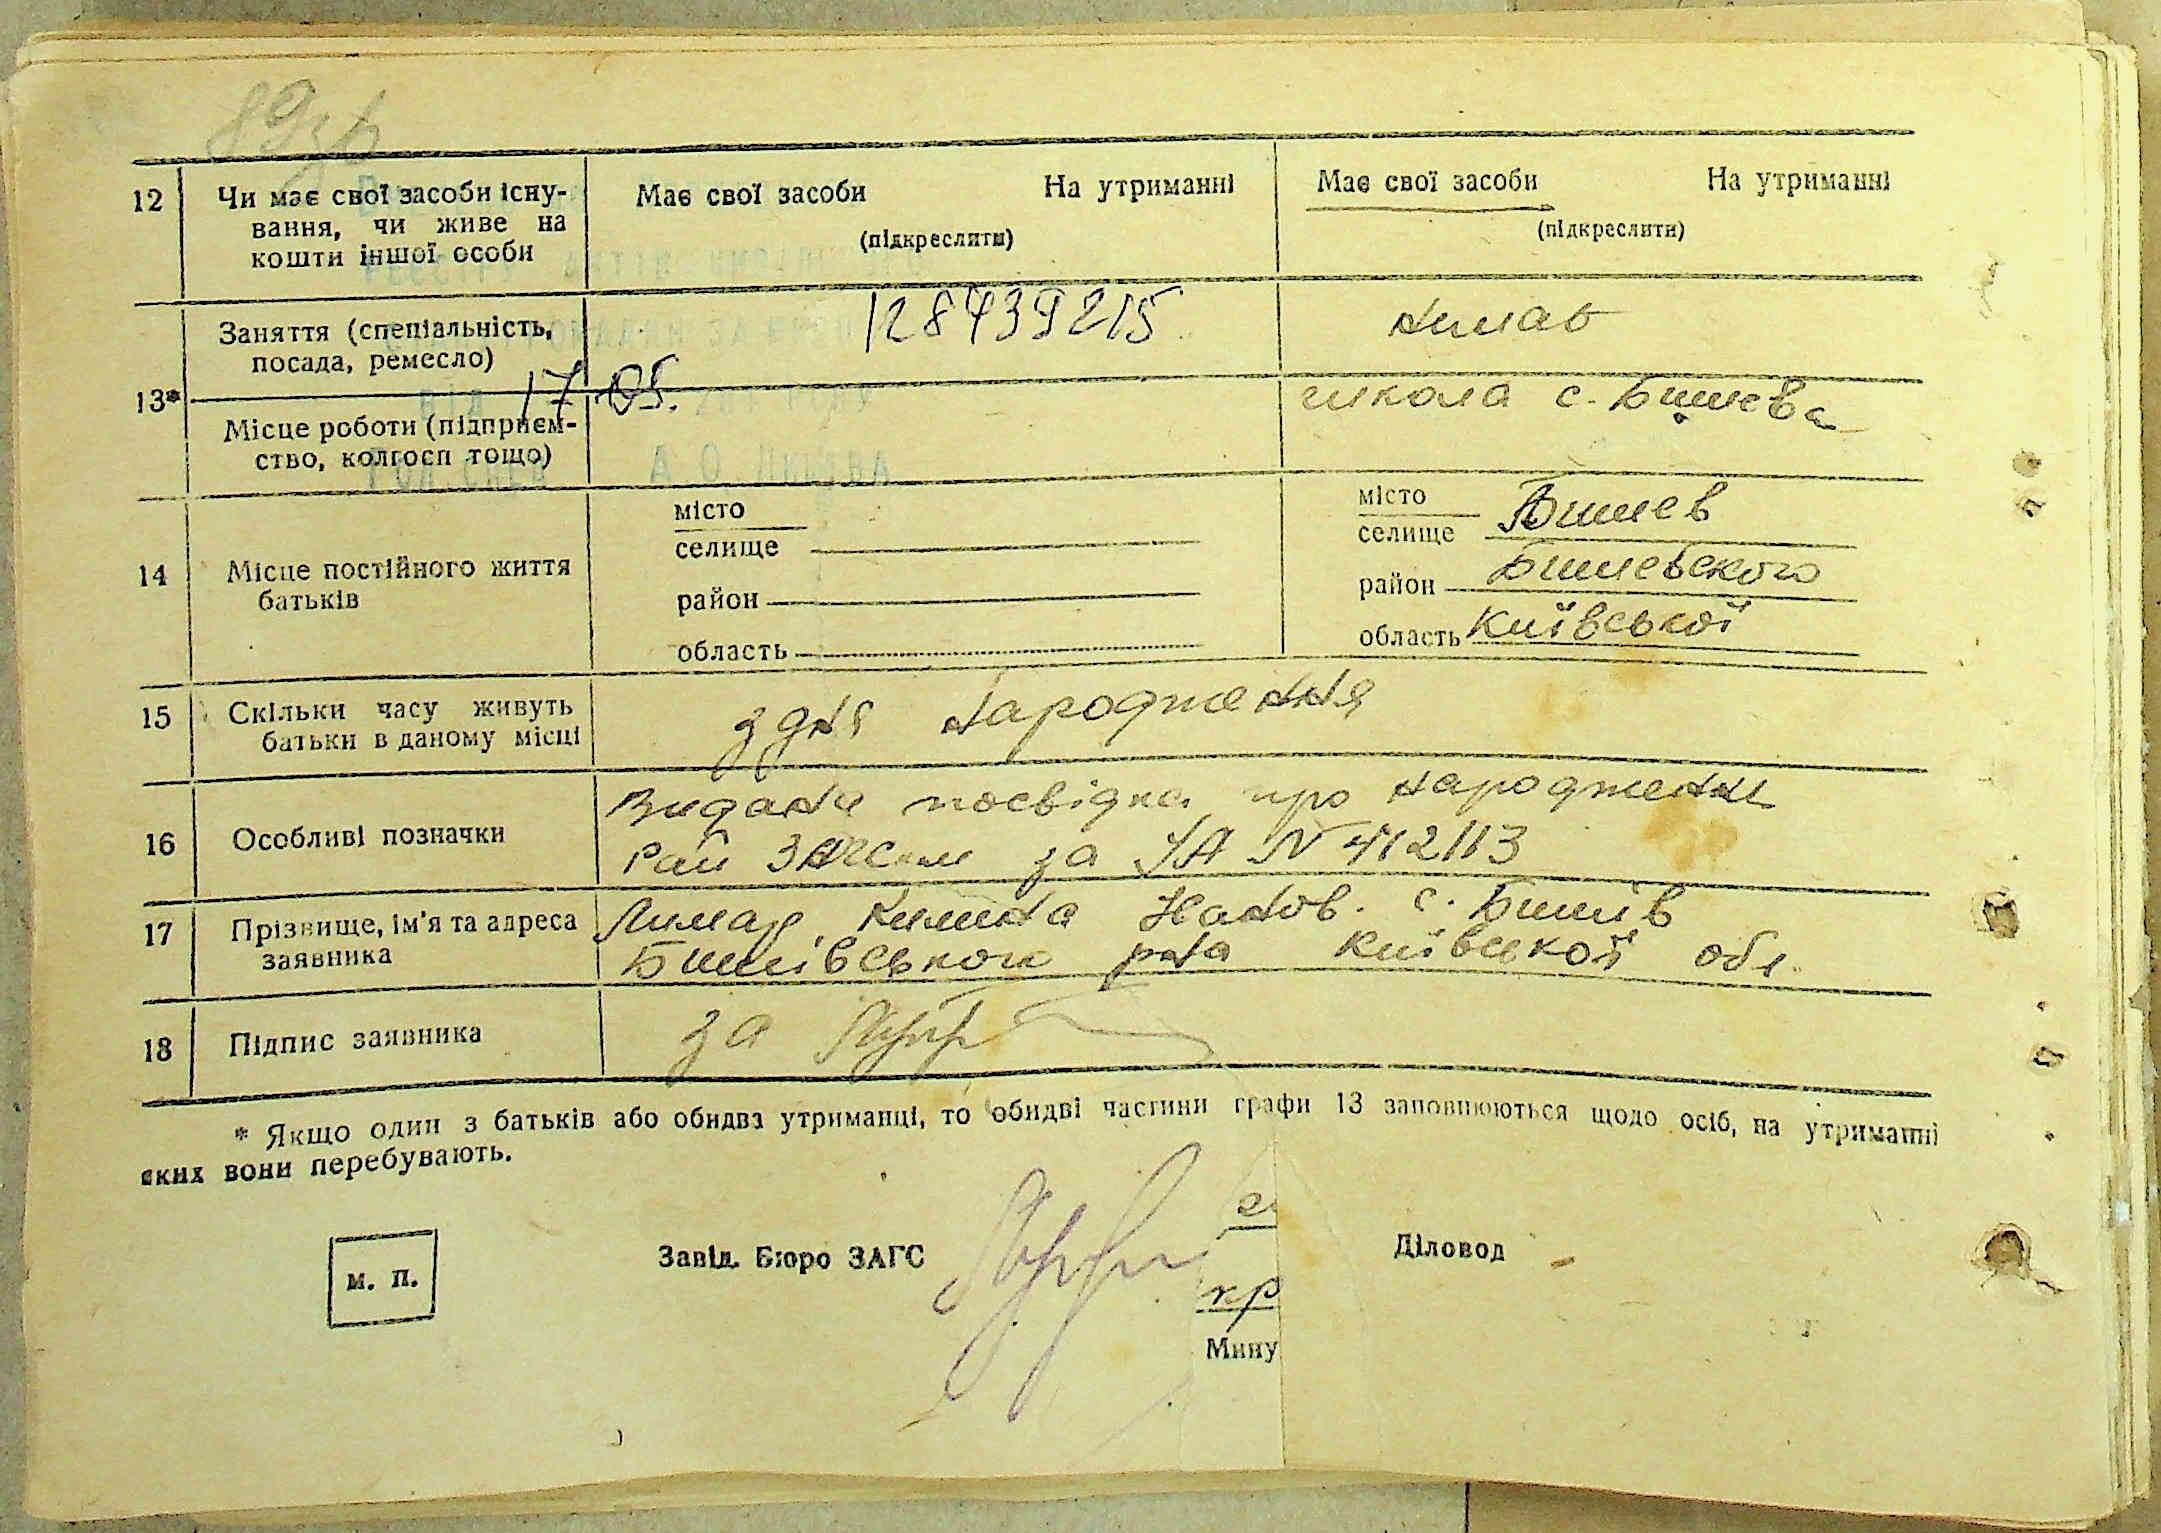 12 Чи має свої засоби існу-
вання, чи живе на
кошти іншої особи
Має свої засоби На утриманні
(підкреслити)
Має свої засоби На утриманні
(підкреслити)
13*
Заняття (спеціальність,
посада, ремесло)
128739215
17 05.
Місце роботи (підприєм-
ство, колгосп тощо)
школа с. Бишева
14 Місце постійного життя
батьків
місто
селище
район
область
місто
селище Бишев
район Бишевского
область Київської
15 Скільки часу живуть
батьки в даному місці
з дня народження
16 Особливі позначки
Видана посвідка про народження
Рай ЗАГСом за УА N 412113
17 Прізвище, ім'я та адреса
заявника
Лимар с. Бишів
Бишівського р-на Київської обл.
18 Підпис заявника
за
* Якщо один з батьків або обидва утриманці, то обидві частини графи 13 заповнюються щодо осіб, на утриманні
яких вони перебувають.
м. п.
Завід. Бюро ЗАГС
кр
Мину
Діловод -